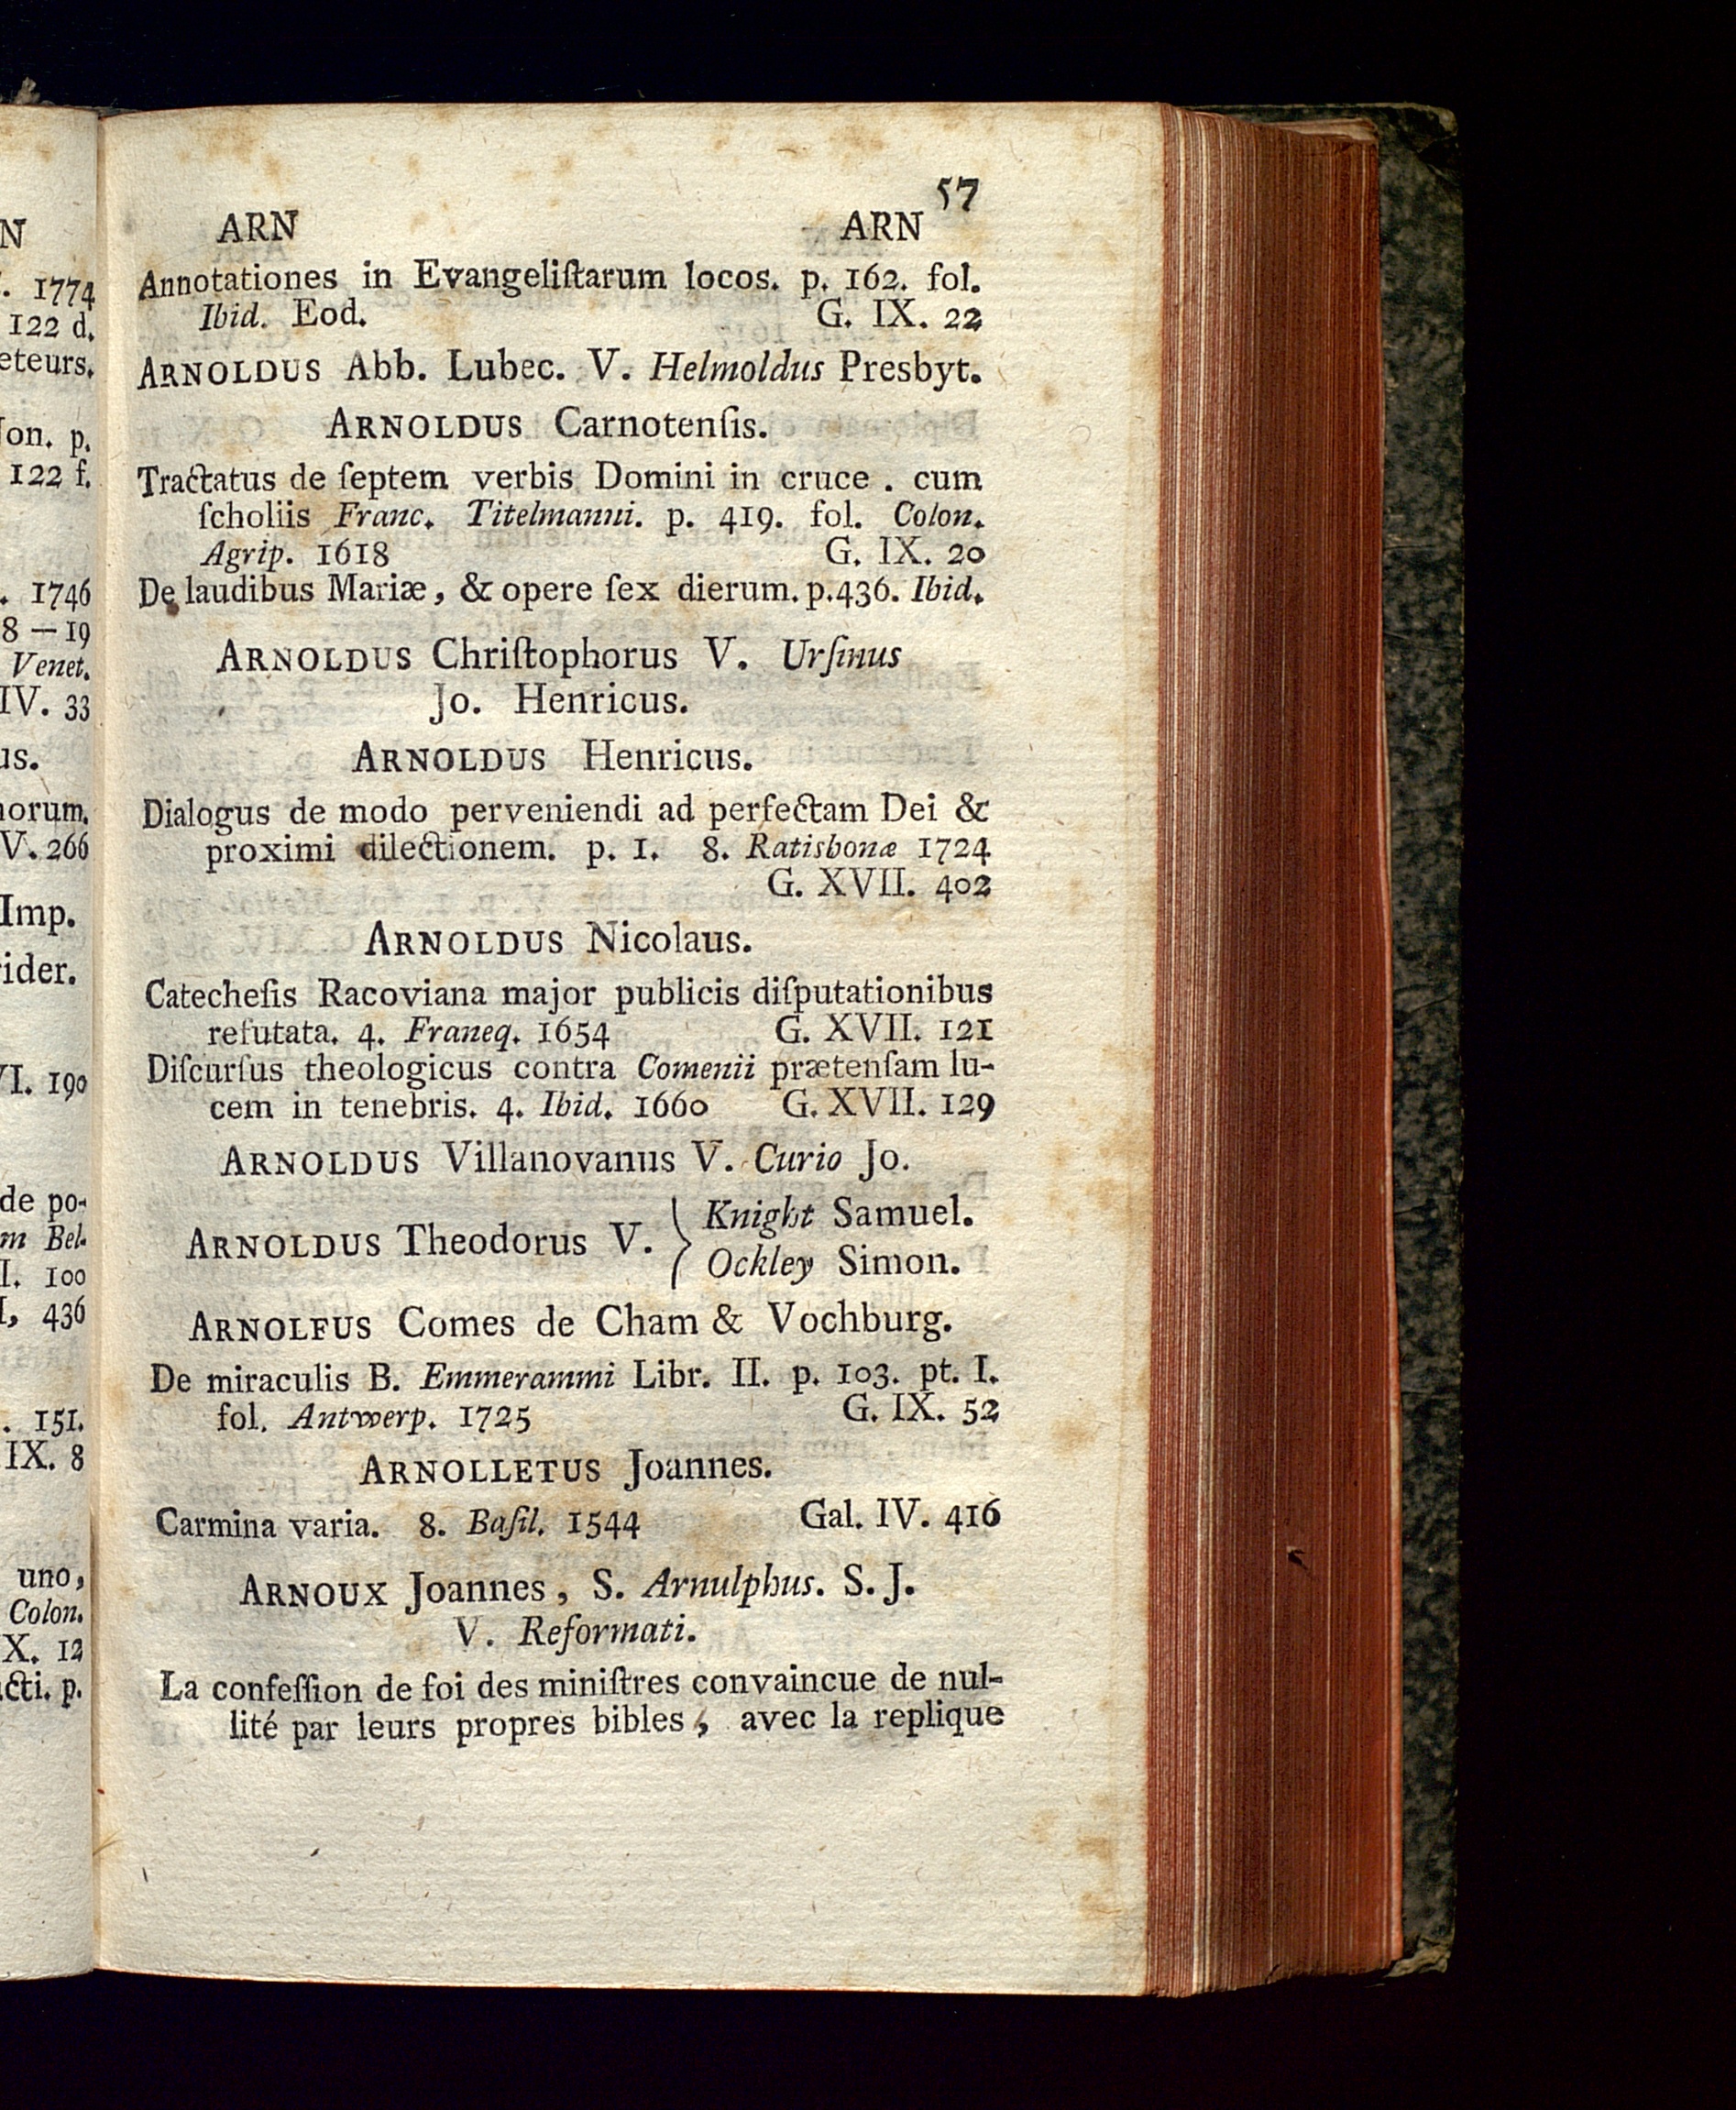 N
. 1774
122 d.
eteurs.
on. p.
122 f.
. 1746
8 — 19
Venet.
IV. 33
us.
orum.
V. 266
Imp.
ider.
VI. 190
de po-
m Bel-
I. 100
I, 436
. 151.
IX. 8
uno,
Colon.
X. 12
cti. p.
57
ARN ARN
Annotationes in Evangeliſtarum locos. p. 162. fol.
Ibid. Eod. G. IX. 22
ARNOLDUS Abb. Lubec. V. Helmoldus Presbyt.
ARNOLDUS Carnotenſis.
Tractatus de ſeptem verbis Domini in cruce . cum
ſcholiis Franc. Titelmanni. p. 419. fol. Colon.
Agrip. 1618 G. IX. 20
De laudibus Mariæ, & opere ſex dierum. p.436. Ibid.
ARNOLDUS Chriſtophorus V. Urſinus
Jo. Henricus.
ARNOLDUS Henricus.
Dialogus de modo perveniendi ad perfectam Dei &
proximi dilectionem. p. 1. 8. Ratisbonæ 1724
G. XVII. 402
ARNOLDUS Nicolaus.
Catecheſis Racoviana major publicis diſputationibus
refutata. 4. Franeq. 1654 G. XVII. 121
Diſcurſus theologicus contra Comenii prætenſam lu-
cem in tenebris. 4. Ibid. 1660 G. XVII. 129
ARNOLDUS Villanovanus V. Curio Jo.
ARNOLDUS Theodorus V. } Knight Samuel.
Ockley Simon.
ARNOLFUS Comes de Cham & Vochburg.
De miraculis B. Emmerammi Libr. II. p. 103. pt. I.
fol. Antwerp. 1725 G. IX. 52
ARNOLLETUS Joannes.
Carmina varia. 8. Baſil. 1544 Gal. IV. 416
ARNOUX Joannes, S. Arnulphus. S. J.
V. Reformati.
La confeſſion de foi des miniſtres convaincue de nul-
lité par leurs propres bibles, avec la replique